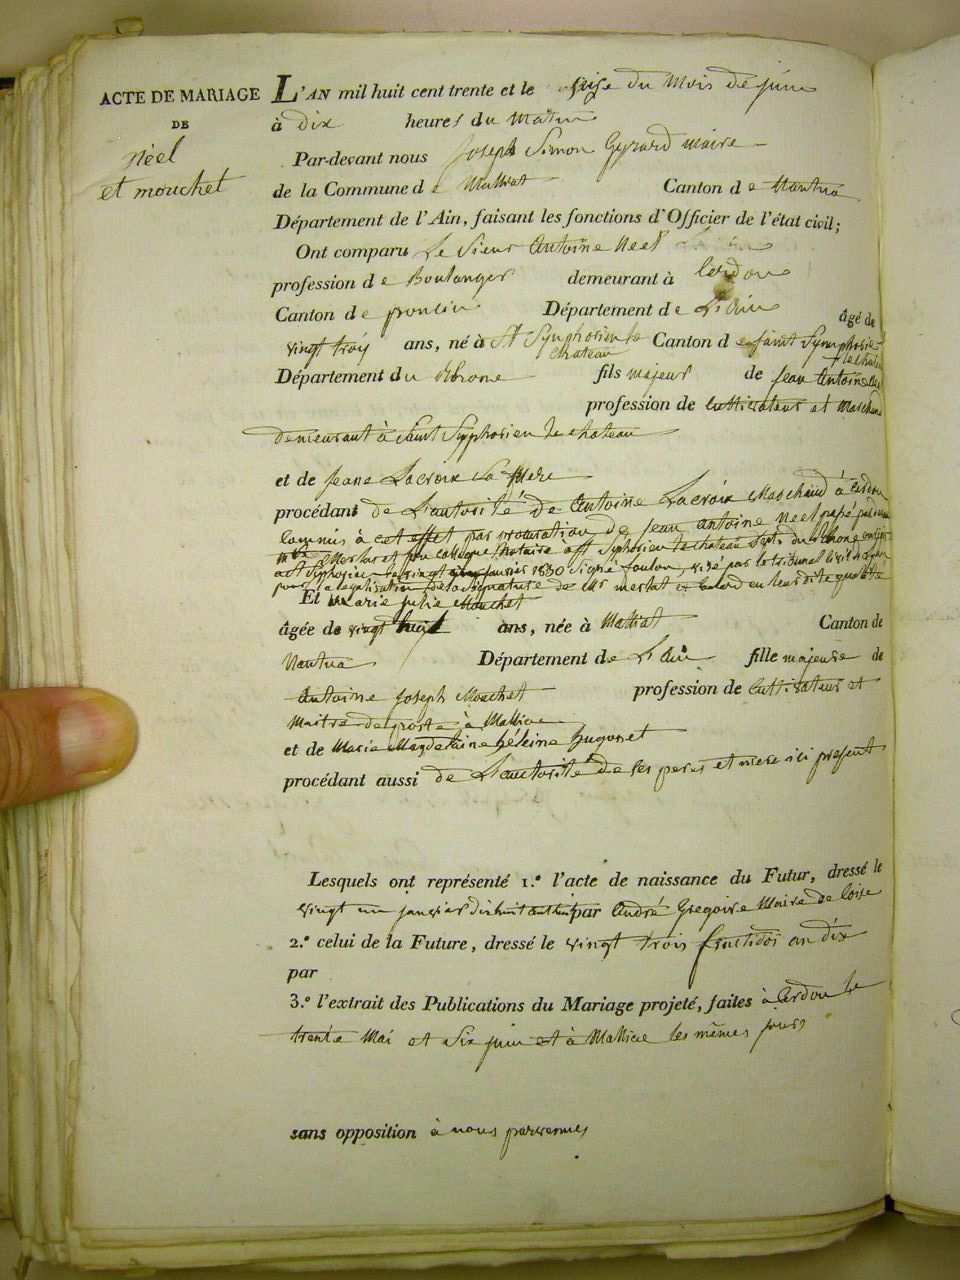 ACTE DE MARIAGE
DE
Néel
et mouchet
L'AN mil huit cent trente et le seize du Mois de juin
à dix heures du Matin
Par-devant nous Joseph Simon Gyrard maire
de la Commune de Matiat Canton de Nantua
Département de l'Ain, faisant les fonctions d'Officier de l'état civil;
Ont comparu Le Sieur Antoine Neel
profession de Boulanger demeurant à Cerdon
Canton de poncin Département de L'Ain âgé de
vingt trois ans, né à St Symphorien le chateau Canton de saint Symphorien le chateau
Département du Rhone fils majeur de Jean Antoine
profession de Cultivateur et Marchand
demeurant à Saint Syphorien le chateau
et de Jeane Lacroix Sa Mere
procédant de L'autorité de Antoine Lacroix Marchand à Cerdon
Commis à cet effet par procuration de Jean Antoine Neel passé
Merlat et son collegue Notaire a St Syphorien le chateau Dept. du Rhone
a St Syphorien le vingt janvier 1830 Signé foulon, visé par le tribunal Civil
pour la legalisation de la signature de Mr merlat en leur dite qualité
Et Marie Julie Mouchet
âgée de vingt huit ans, née à Matiat Canton de
Nantua Département de L'Ain fille majeure de
Antoine Joseph Mouchet profession de Cultivateur et
Maitre de poste à
et de Marie Magdelaine héleine hugonet
procédant aussi de L'autorité de ses peres et mere ici present
Lesquels ont représenté 1.º l'acte de naissance du Futur, dressé le
vingt un janvier dixhuit cent par André Gregoire Maire de
2.º celui de la Future, dressé le vingt trois fructidor an dix
par
3.º l'extrait des Publications du Mariage projeté, faites à Cerdon le
trente Mai et Six juin et à les mêmes jours
sans opposition à nous parvenues